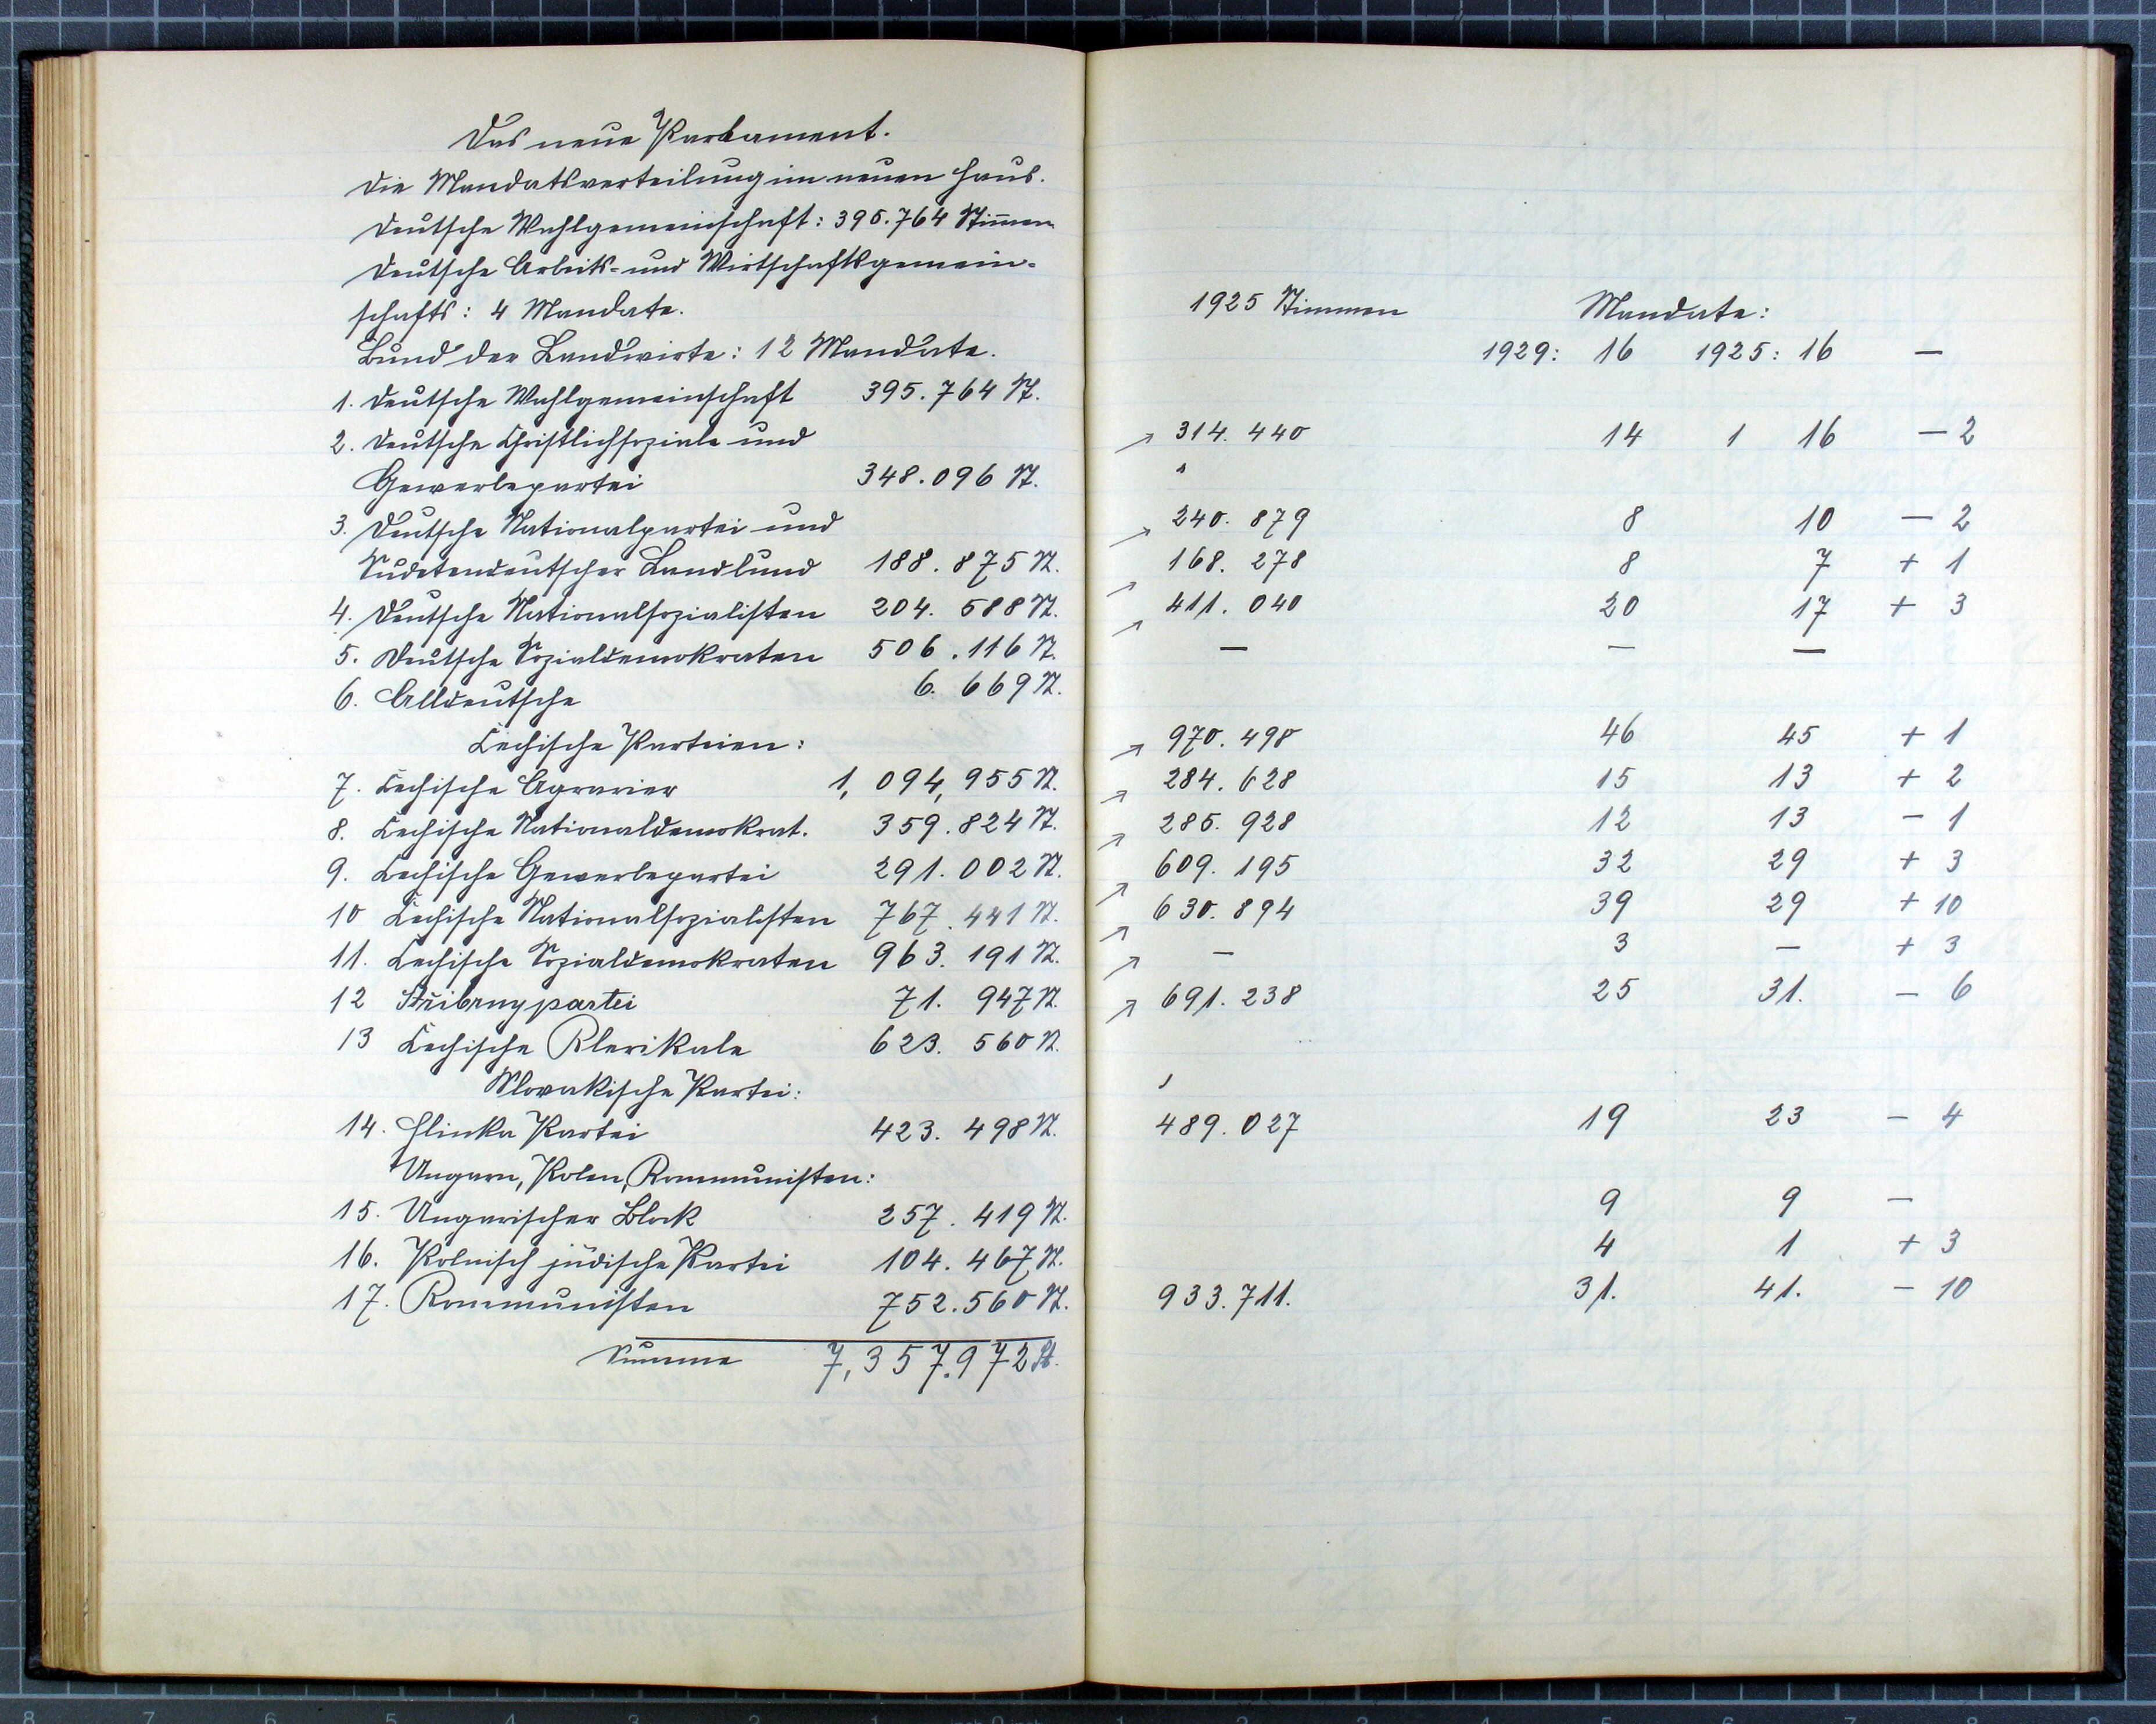 Das neue Parlament.
Die Mandatsverteilung im neuen Haus.
Deutsche Wahlgemeinschaft: 395.764 Stimmen
Deutsche Arbeits- und Wirtschaftsgemein-
schafts: 4 Mandate.
Bund der Landwirte: 12 Mandate.
1. Deutsche Wahlgemeinschaft 395.764 St.
2. Deutsche Christlichsoziale und
Gewerbepartei 348.096 St.
3. Deutsche Nationalpartei und
Sudetendeutscher Landbund 188.875 St.
4. Deutsche Nationalsozialisten 204.588 St.
5. Deutsche Sozialdemokraten 506.116 St.
6. Alldeutsche 6.669 St.
Čechische Parteien:
7. Čechische Agrarier 1,094,955 St.
8. Čechische Nationaldemokrat. 359.824 St.
9. Čechische Gewerbepartei 291.002 St.
10 Čechische Nationalsozialisten 767.441 St.
11. Čechische Sozialdemokraten 963.191 St.
12 Střibrnypartei 71.947 St.
13 Čechische Klerikale 623.560 St.
Slovakische Partei:
14. Hlinka Partei 423.498 St.
Ungarn, Polen, Kommunisten:
15. Ungarischer Block 257.419 St.
16. Polnisch jüdische Partei 104.467 St.
17. Kommunisten 752.560 St.
Summe 7,357.972 St.
1925 Stimmen Mandate:
1929: 16 1925: 16 —
314.440 14 1 16 — 2
240.879 8 10 — 2
168.278 8 7 + 1
411.040 20 17 + 3
— — —
970.498 46 45 + 1
284.628 15 13 + 2
285.928 12 13 - 1
609.195 32 29 + 3
630.894 39 29 + 10
— 3 — + 3
691.238 25 31. — 6
489.027 19 23 — 4
9 9 —
4 1 + 3
933.711. 31. 41. — 10